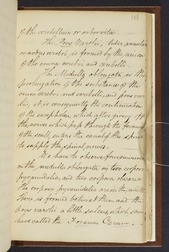 of the cerebellum or arborvitæ.
The Pons Varolii, tuber annulare
or nodus cerebri, is formed by the union
of the crura cerebri and cerebelli.
The Medulla oblongata is the
prolongation of the substance of the
crura cerebri and cerebelli, and pons varo
lii, it is consequently the continuation
of the encephalon, which after going off
the nerves which pass through the foramina
of the skull, enters the canal of the spine
to supply the spinal nerves.
We have to observe four eminences
on the medulla oblongata viz two corpora
pyramidalia, and two corpora olivaria
The corpora pyramidalia are in the middle
there is formed between them and the
pons varolii a little sulcus, which some
have called the Foramen Cæcum.